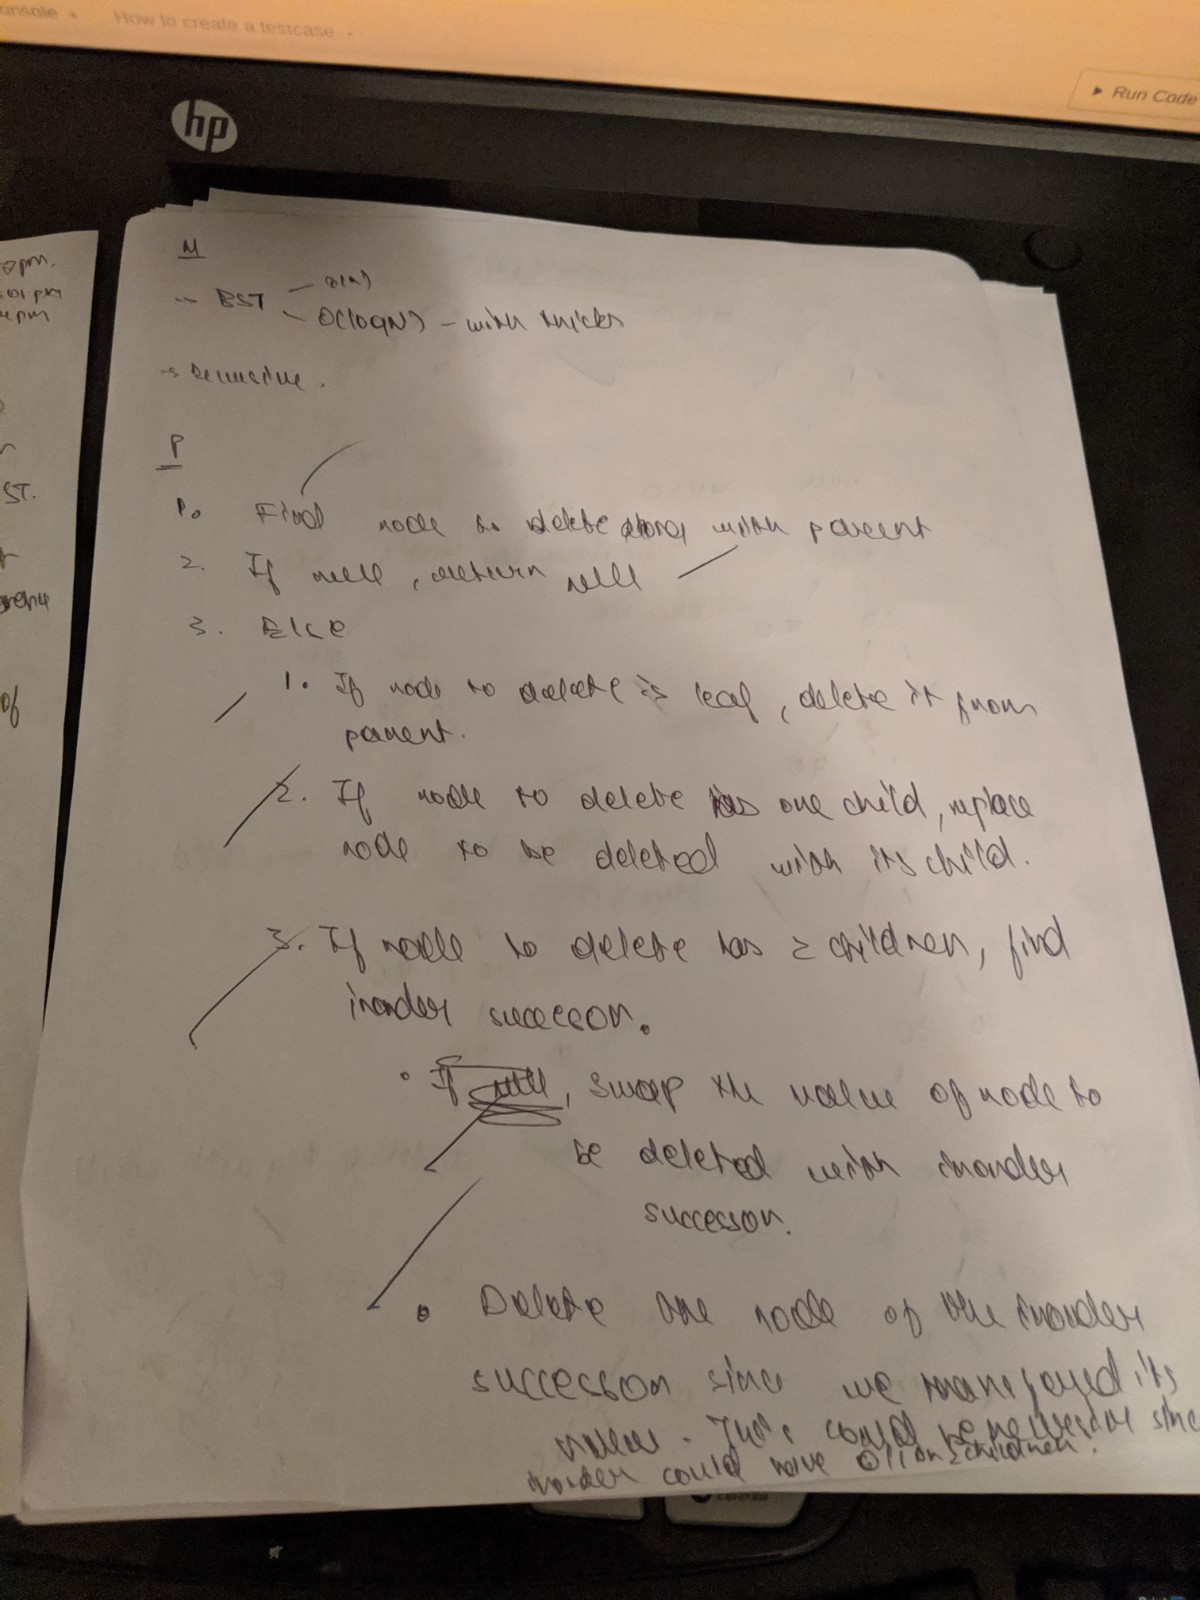 onsole
How to create a testcase
Run Code
hp
M
BST - O(N)
- O(logN) - with tricks
→ Recursive.
P
1. Find node to delete along with parent
2. If null, return null
3. Else
1. If node to delete is leaf, delete it from
parent.
2. If node to delete has one child, replace
node to be deleted with its child.
3. If node to delete has 2 children, find
inorder successor.
• If null, swap the value of node to
be deleted with inorder
successor.
• Delete the node of the inorder
successor since we transferred its
value. This could be recursive since
inorder could have 0/1 or 2 children.
pm.
pm
pm
ST.
of